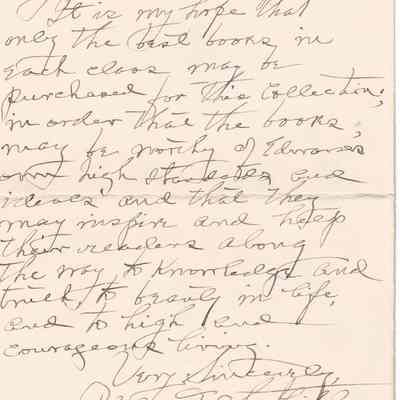 It is my hope that
only the best books in
each class may be
purchased for this collection;
in order that the books,
may be worthy of Edwards
own high standards and
ideas and that they
may inspire and help
their readers along
the way to knowledge and
truth, to beauty in life,
and to high and
courageous living.
Very Sincerely,